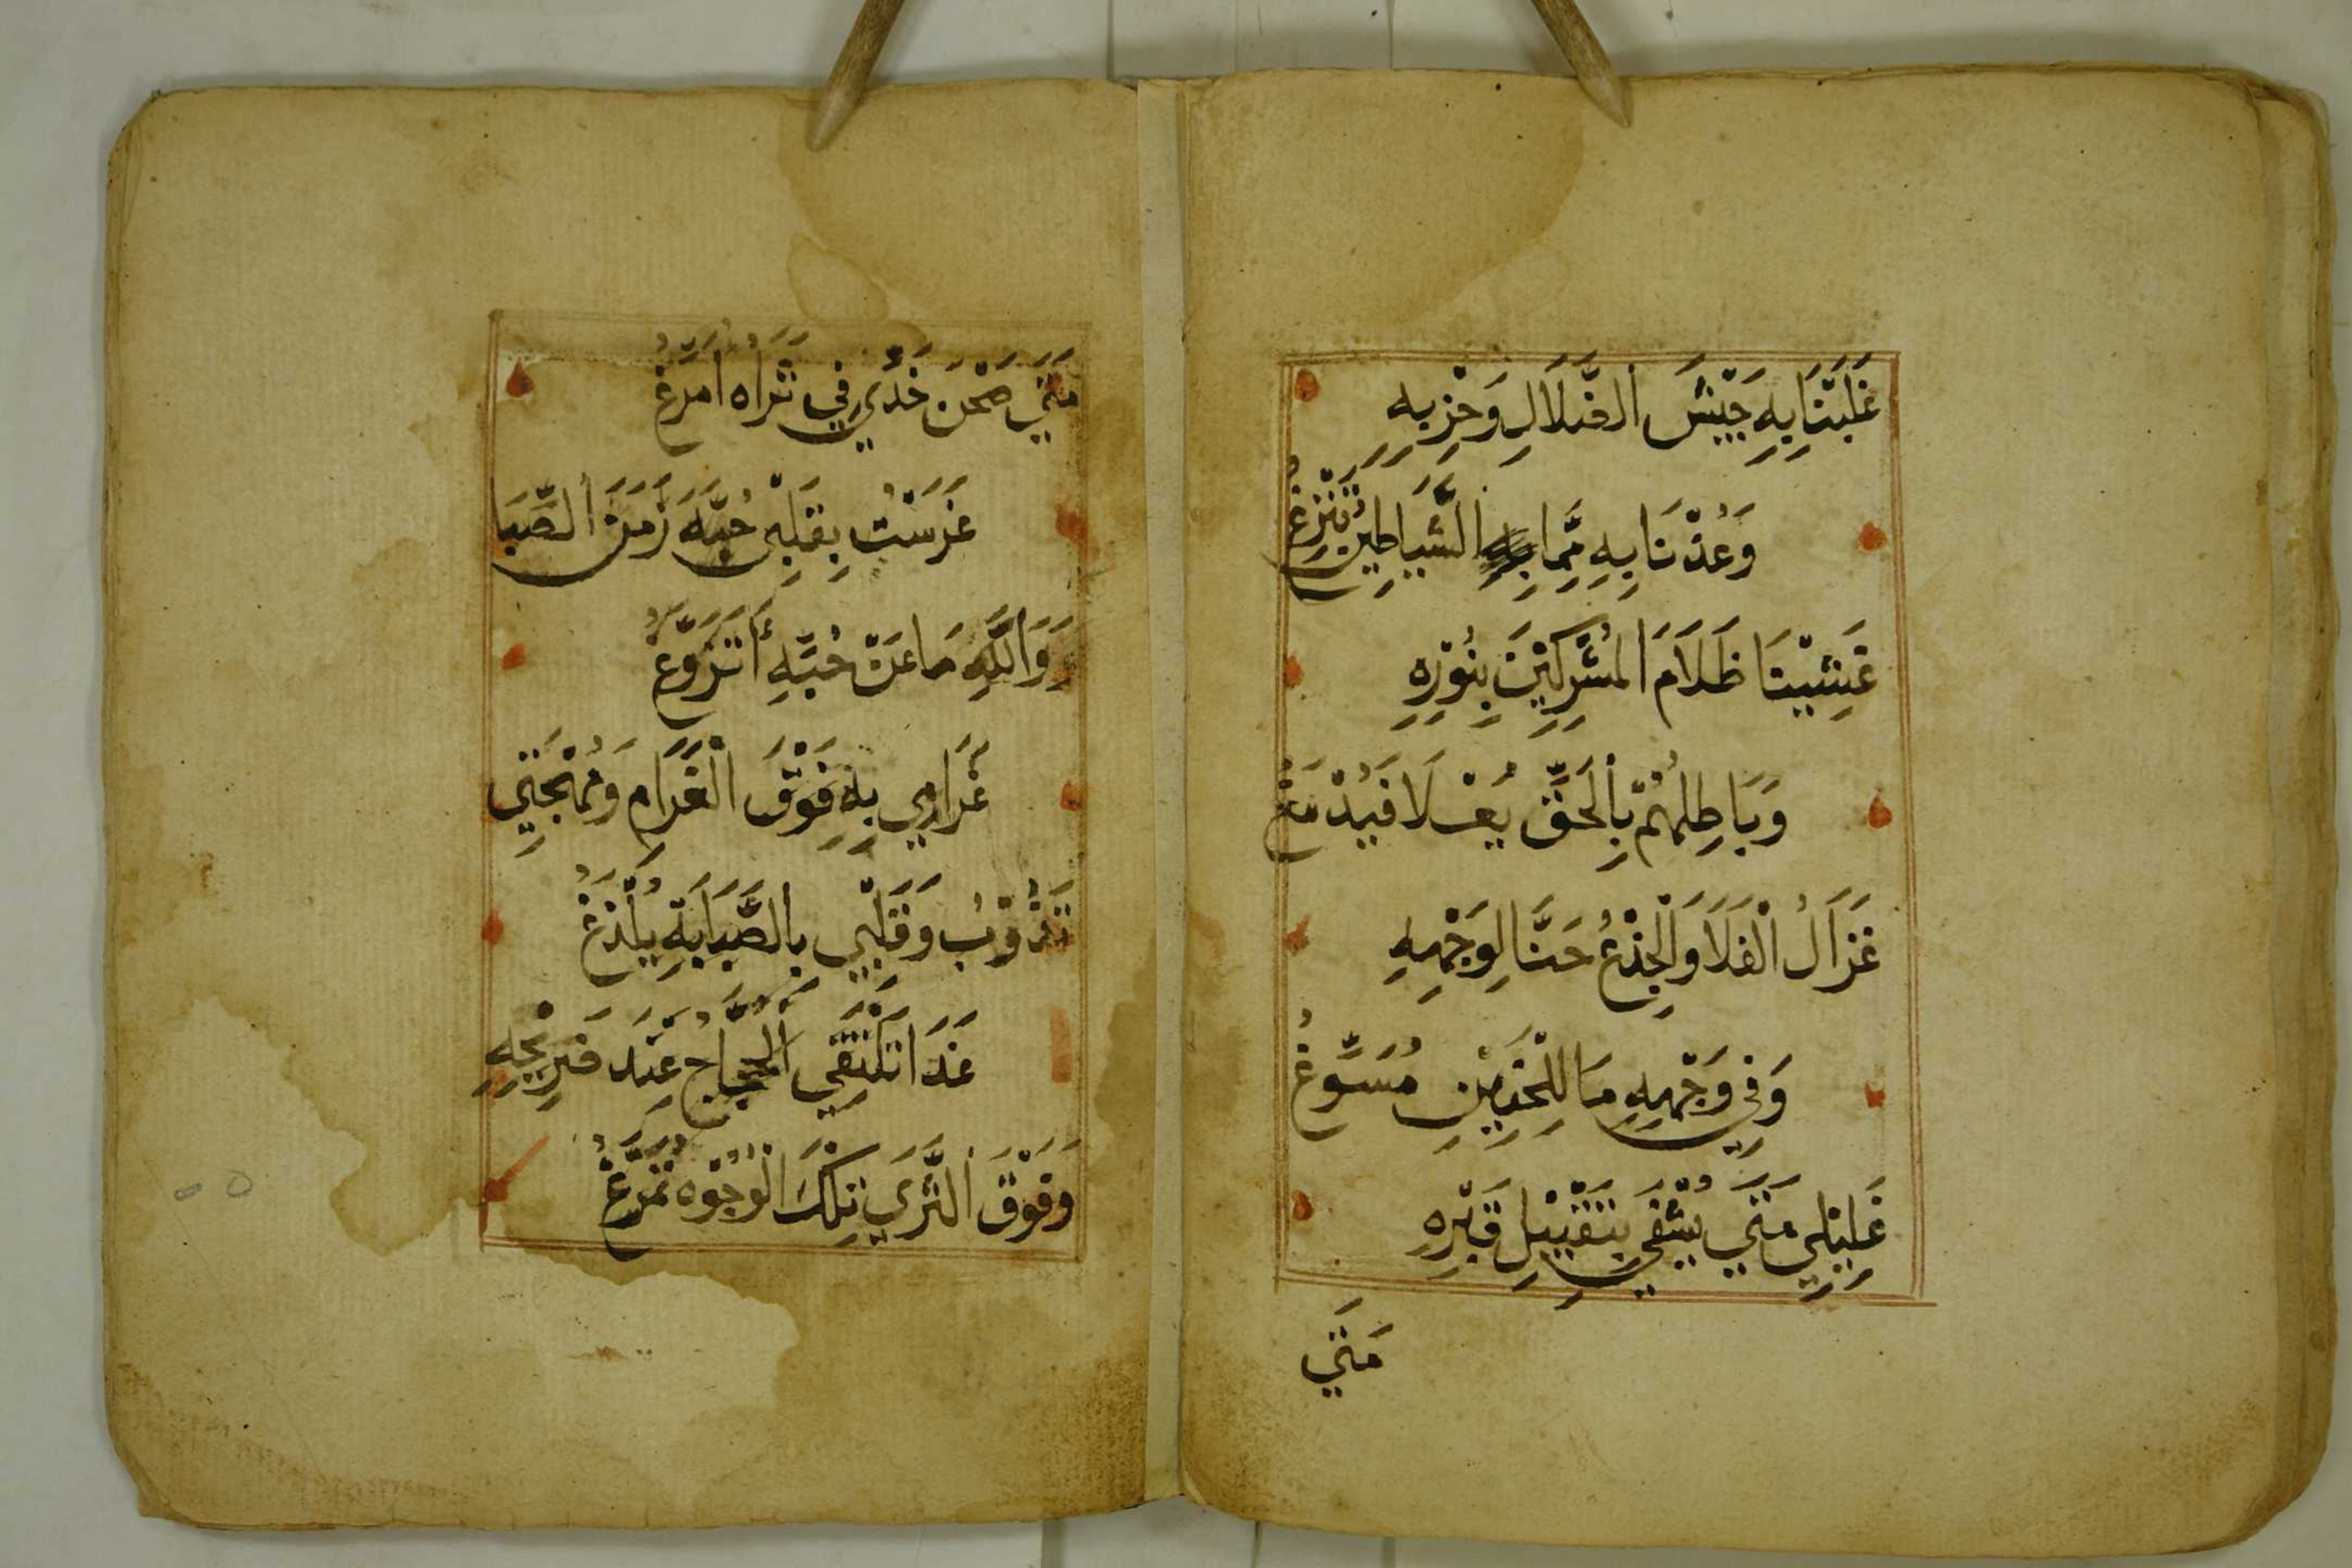 غَلَبْنَا بِهِ جَيْشَ الضَّلَالِ وَحِزْبِهِ
وَعُذْنَا بِهِ مِمَّا بِهِ الشَّيَاطِينُ تَنْزِغُ
غَشِيْنَا ظَلَامَ الْمُشْرِكِيْنَ بِنُوْرِهِ
وَبَاطِلُهُمْ بِالْحَقِّ يُعْلَا فَيُدْمَغُ
غَزَالُ الْفَلَا وَالْجِذْعُ حَنَّا لِوَجْهِهِ
وَفِي وَجْهِهِ مَا لِلْحَنِيْنِ مُسَوِّغُ
غَلِيْلِي مَتَي يُشْفَي بِتَقْبِيْلِ قَبْرِهِ
مَتَي
مَتَي صَحْنَ خَدِّي فِي ثَرَاهُ أُمَرِّغُ
غَرَسْتُ بِقَلْبِي حُبَّهُ زَمَنَ الصِّبَا
وَوَاللَّهِ مَا عَنْ حُبِّهِ أَتَزَوَّغُ
غَرَامِي بِهِ فَوْقَ الْغَرَامِ وَمُهْجَتِي
تَذُوْبُ وَقَلْبِي بِالصَّبَابَةِ يُلْدَغُ
غَدَا تَلْتَقِي الْحُجَّاجُ عِنْدَ ضَرِيْحِهِ
وَفَوْقَ الثَّرَي تِلْكَ الْوُجُوْهُ تُمَرَّغُ